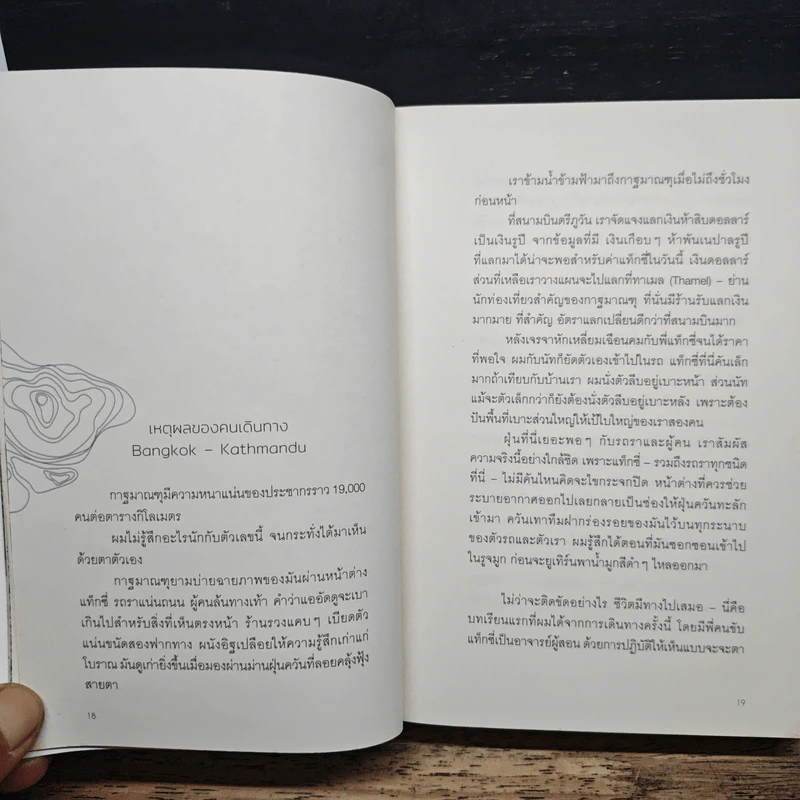 เหตุผลของคนเดินทาง
Bangkok – Kathmandu
กาฐมาณฑุมีความหนาแน่นของประชากรราว 19,000
คนต่อตารางกิโลเมตร
ผมไม่รู้สึกอะไรนักกับตัวเลขนี้ จนกระทั่งได้มาเห็น
ด้วยตาตัวเอง
กาฐมาณฑุยามบ่ายฉายภาพของมันผ่านหน้าต่าง
แท็กซี่ รถราแน่นถนน ผู้คนล้นทางเท้า คำว่าแออัดดูจะเบา
เกินไปสำหรับสิ่งที่เห็นตรงหน้า ร้านรวงแคบๆ เบียดตัว
แน่นขนัดสองฟากทาง ผนังอิฐเปลือยให้ความรู้สึกเก่าแก่
โบราณ มันดูเก่ายิ่งขึ้นเมื่อมองผ่านม่านฝุ่นควันที่ลอยคลุ้งฟุ้ง
สายตา
18
เราข้ามน้ำข้ามฟ้ามาถึงกาฐมาณฑุเมื่อไม่ถึงชั่วโมง
ก่อนหน้า
ที่สนามบินตรีภูวัน เราจัดแจงแลกเงินห้าสิบดอลลาร์
เป็นเงินรูปี จากข้อมูลที่มี เงินเกือบๆ ห้าพันเนปาลรูปี
ที่แลกมาได้น่าจะพอสำหรับค่าแท็กซี่ในวันนี้ เงินดอลลาร์
ส่วนที่เหลือเราวางแผนจะไปแลกที่ทาเมล (Thamel) – ย่าน
นักท่องเที่ยวสำคัญของกาฐมาณฑุ ที่นั่นมีร้านรับแลกเงิน
มากมาย ที่สำคัญ อัตราแลกเปลี่ยนดีกว่าที่สนามบินมาก
หลังเจรจาหักเหลี่ยมเฉือนคมกับพี่แท็กซี่จนได้ราคา
ที่พอใจ ผมกับนัทก็ยัดตัวเองเข้าไปในรถ แท็กซี่ที่นี่คันเล็ก
มากถ้าเทียบกับบ้านเรา ผมนั่งตัวลีบอยู่เบาะหน้า ส่วนนัท
แม้จะตัวเล็กกว่าก็ยังต้องนั่งตัวลีบอยู่เบาะหลัง เพราะต้อง
ปันพื้นที่เบาะส่วนใหญ่ให้เป้ใบใหญ่ของเราสองคน
ฝุ่นที่นี่เยอะพอๆ กับรถราและผู้คน เราสัมผัส
ความจริงนี้อย่างใกล้ชิด เพราะแท็กซี่ – รวมถึงรถราทุกชนิด
ที่นี่ – ไม่มีคันไหนคิดจะไขกระจกปิด หน้าต่างที่ควรช่วย
ระบายอากาศออกไปเลยกลายเป็นช่องให้ฝุ่นควันทะลัก
เข้ามา ควันเทาทึมฝากร่องรอยของมันไว้บนทุกระนาบ
ของตัวรถและตัวเรา ผมรู้สึกได้ตอนที่มันซอกซอนเข้าไป
ในรูจมูก ก่อนจะยูเทิร์นพาน้ำมูกสีดำๆ ไหลออกมา
ไม่ว่าจะติดขัดอย่างไร ชีวิตมีทางไปเสมอ – นี่คือ
บทเรียนแรกที่ผมได้จากการเดินทางครั้งนี้ โดยมีพี่คนขับ
แท็กซี่เป็นอาจารย์ผู้สอน ด้วยการปฏิบัติให้เห็นแบบจะจะตา
19